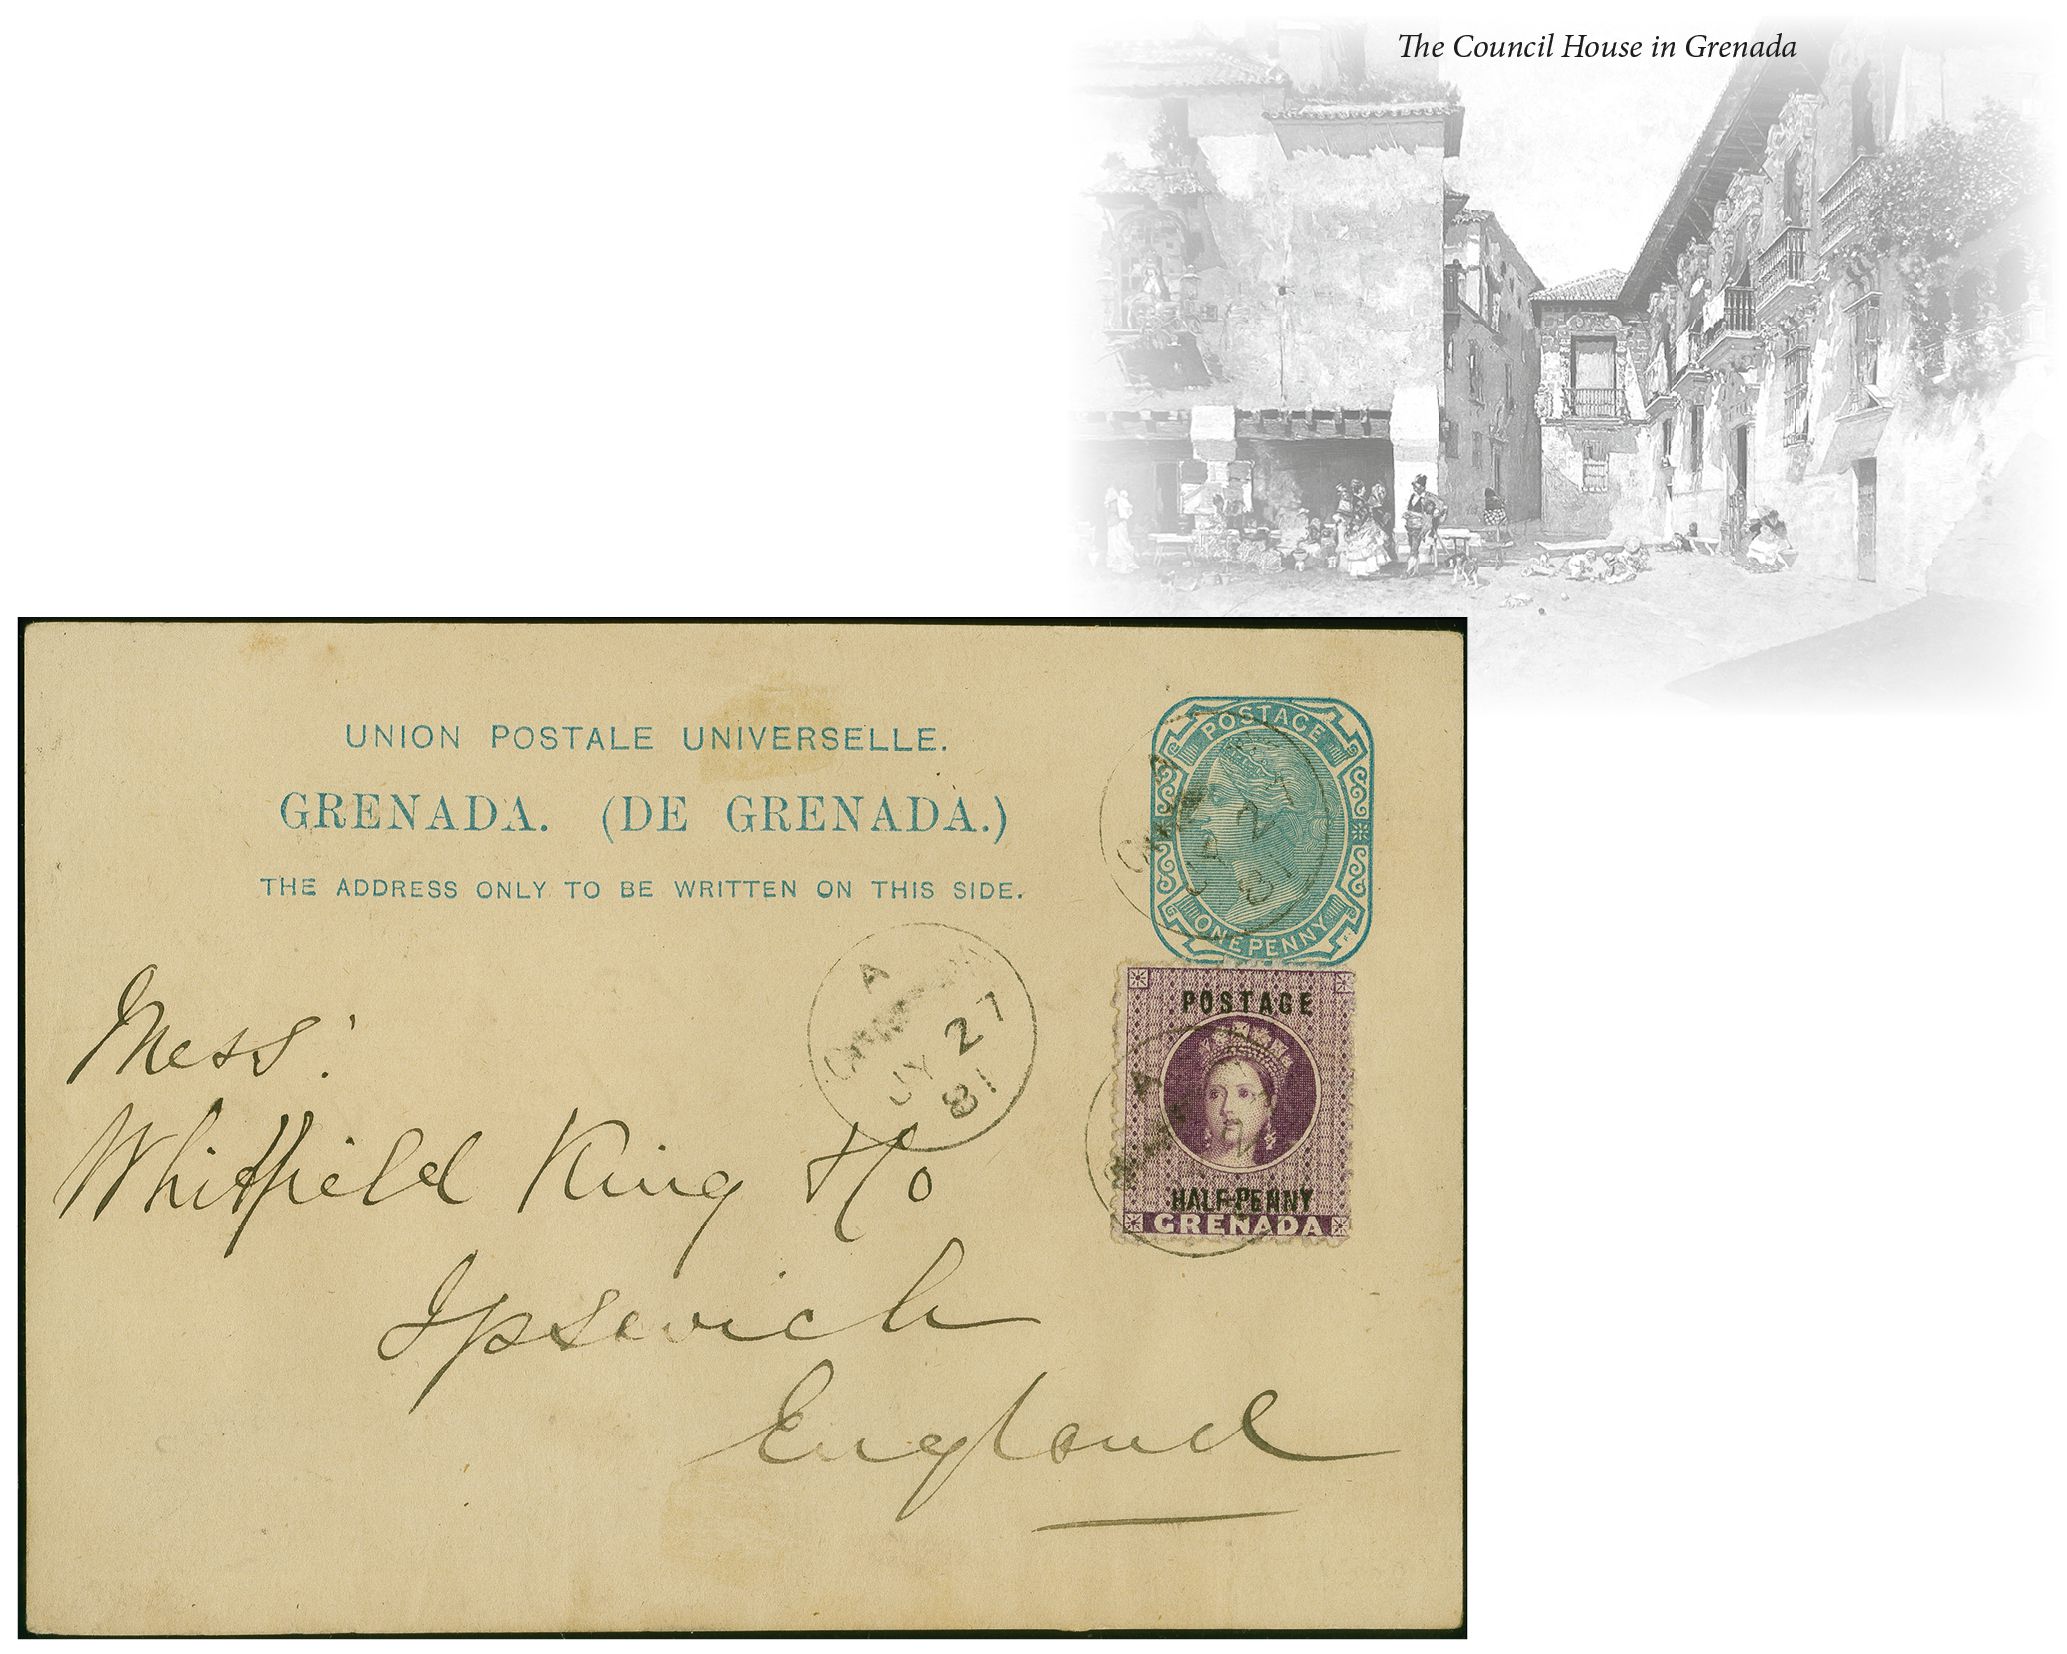 The Council House in Grenada
UNION POSTALE UNIVERSELLE.
GRENADA. (DE GRENADA.)
THE ADDRESS ONLY TO BE WRITTEN ON THIS SIDE.
POSTAGE
ONE PENNY
A
JY 27
81
A
JY 27
81
POSTAGE
HALF-PENNY
GRENADA
A
Mess:
Whitfield King & Co
Ipswich
England